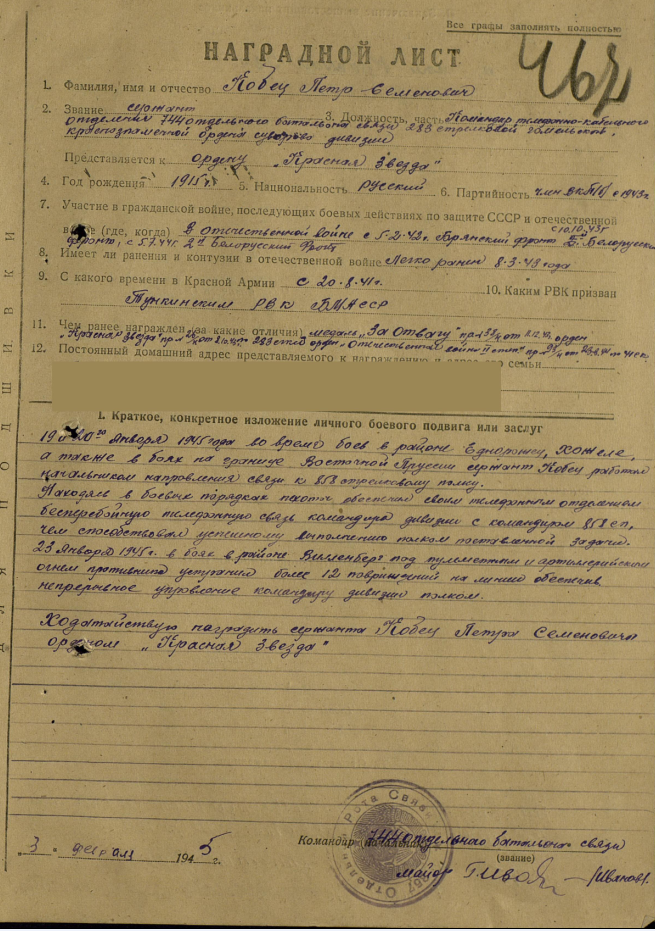 Все графы заполнять полностью
467
НАГРАДНОЙ ЛИСТ
1. Фамилия, имя и отчество Кобец Петр Семенович
2. Звание сержант 3. Должность, часть Командир телефонно-кабельного
отделения 744 отдельного батальона связи 283 стрелковой Гомельской,
краснознаменной ордена суворова дивизии
Представляется к ордену „Красная Звезда"
4. Год рождения 1915 г. 5. Национальность русский 6. Партийность член ВКП(б) с 1943г
7. Участие в гражданской войне, последующих боевых действиях по защите СССР и отечественной
войне (где, когда) В отечественной войне с 5.2.42г. Брянский фронт с 10.10.43г Белорусский
фронт, с 5.7.44г 2й Белорусский Фронт
8. Имеет ли ранения и контузии в отечественной войне Легко ранен 8.3.43 года
9. С какого времени в Красной Армии с 20.8.41г. 10. Каким РВК призван
Тункинским РВК БМАССР
11. Чем ранее награжден (за какие отличия) медаль „За Отвагу" орден
„Красная Звезда" 283 сд орден „Отечественная война II степ."
12. Постоянный домашний адрес представляемого к награждению и адрес его семьи
I. Краткое, конкретное изложение личного боевого подвига или заслуг
19 и 20го Января 1945 года во время боев в районе Хожеле,
а также в боях на границе Восточной Пруссии сержант Кобец работал
начальником направления связи к 858 стрелковому полку.
Находясь в боевых порядках пехоты обеспечил своим телефонным отделением
бесперебойную телефонную связь командира дивизии с командиром 858 сп,
чем способствовал успешному выполнению полком поставленной задачи.
23 Января 1945г. в боях в районе Вилленберг под пулеметным и артиллерийским
огнем противника устранил более 12 повреждений на линии обеспечив
непрерывное управление командиру дивизии полком.
Ходатайствую наградить сержанта Кобец Петра Семеновича
орденом „Красная Звезда"
Командир (начальник) 744 отдельного батальона связи
(звание)
„3" февраля 1945 г.
майор /Иванов/.
Рота Связи
ДЛЯ ПОДШИВКИ